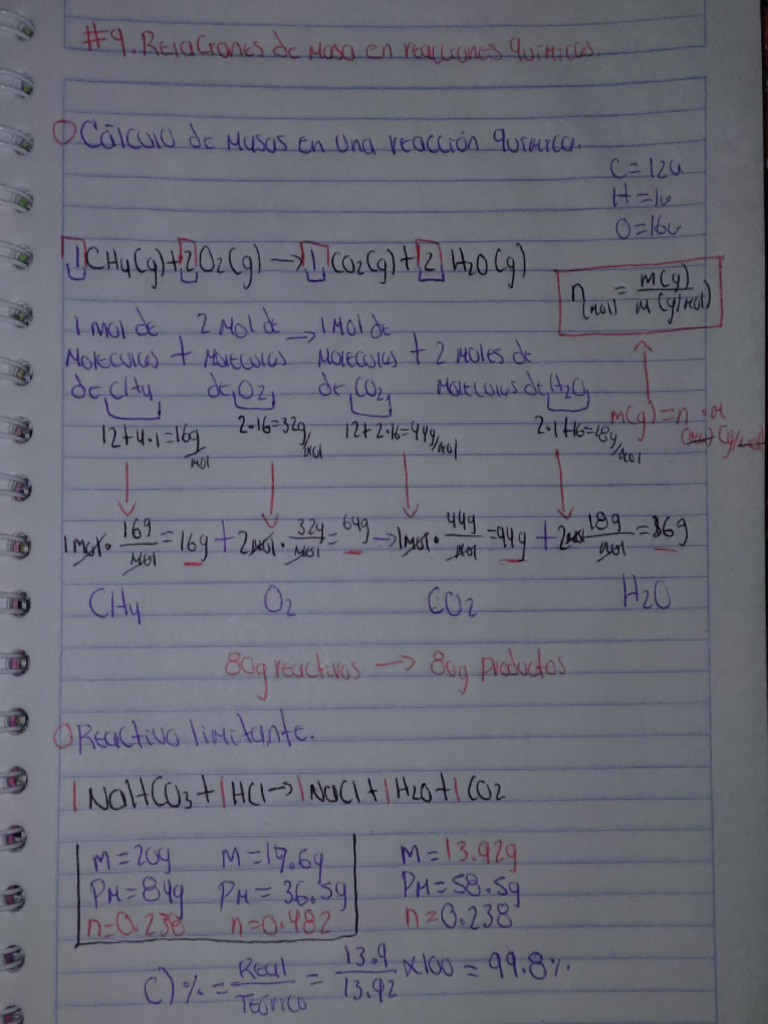 #9. Relaciones de masa en reacciones químicas.
Cálculo de masas en una reacción química.
C=12u
H=1u
O=16u
1 CH4(g)+2 O2(g) → 1 CO2(g)+ 2 H2O(g)
n(mol) = m(g) / M(g/mol)
1 mol de 2 Mol de → 1 Mol de
Moleculas + Moleculas Moleculas + 2 moles de
de CH4 de O2 de CO2 Moleculas de H2O
m(g)=n
12+4·1=16g/mol 2·16=32g/mol 12+2·16=44g/mol 2·1+16=18g/mol
1mol · 16g/mol = 16g + 2mol · 32g/mol = 64g → 1mol · 44g/mol = 44g + 2mol 18g/mol = 36g
CH4 O2 CO2 H2O
80g reactivos → 80g productos
Reactivo limitante.
1 NaHCO3 + 1 HCl → 1 NaCl + 1 H2O + 1 CO2
m=20g m=17.6g m=13.92g
PM=84g PM=36.5g PM=58.5g
n=0.238 n=0.482 n=0.238
C) % = Real / Teórico = 13.9 / 13.92 ×100 = 99.8%